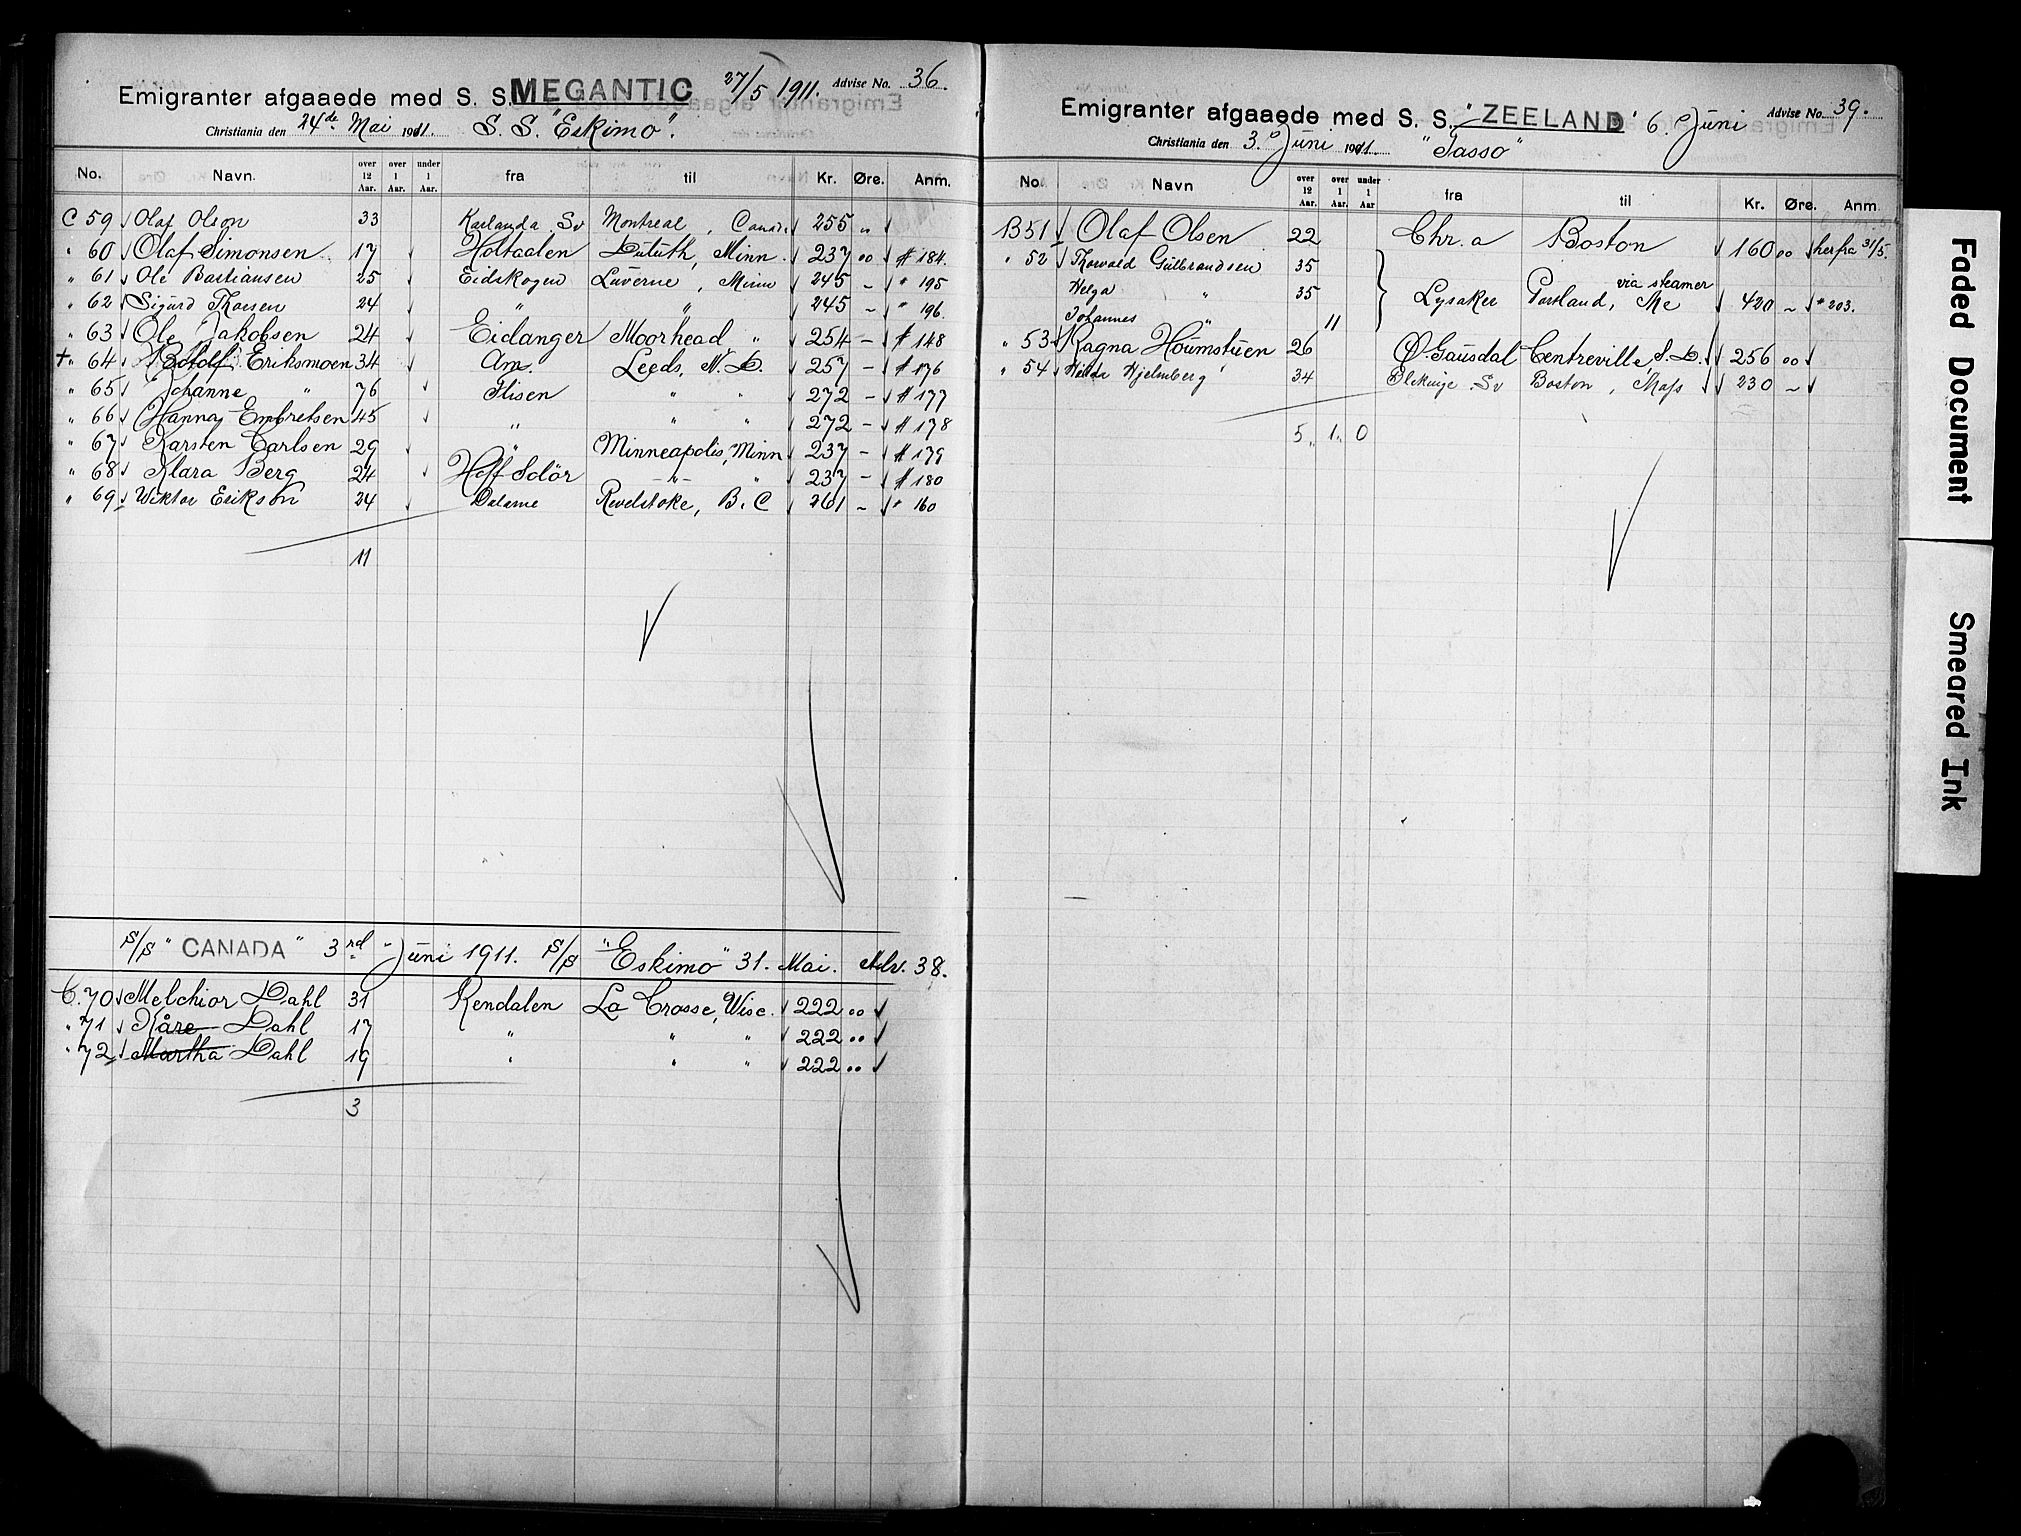 Emigranter afgaaede med S. S. MEGANTIC 27/5 1911. Advise No. 36.
Christiania den 24de Mai 1911. S. S. "Eskimo".
No. Navn. over 12 Aar. over 1 Aar. under 1 Aar. fra til Kr. Øre. Anm.
C 59 Olaf Olson 33 Karlanda Sv Montreal, Canada 255 "
" 60 Olaf Simonsen 17 Holtaalen Duluth, Minn. 237 00 # 184.
" 61 Ole Bastiansen 25 Eidskogen Luverne, Minn 245 – " 195
" 62 Sigurd Thoresen 24 " " 245 – " 196.
" 63 Ole Jakobsen 24 Eidanger Moorhead, " 254 – # 148
+ " 64 Botolf Eriksmoen 34 Am. Leeds, N. D. 257 – # 176
" 65 Johanne " 76 Flisen " " 272 – # 177
" 66 Hanna Embretsen 45 " " " 272 – # 178
" 67 Karsten Carlsen 29 " Minneapolis, Minn 237 – # 179
" 68 Klara Berg 24 Hoff Solör –"– " 237 – # 180
" 69 Wiktor Erikson 24 Dalarne Revelstoke, B. C 261 – " 160
11
S/S "CANADA" 3rd Juni 1911. S/S "Eskimo" 31. Mai. Adv. 38.
C. 70 Melchior Dahl 31 Rendalen La Crosse, Wisc. 222 00
" 71 Kåre Dahl 17 " " " 222 00
" 72 Martha Dahl 19 " " " 222 00
3
Emigranter afgaaede med S. S. "ZEELAND" 6. Juni Advise No. 39.
Christiania den 3. Juni 1911. "Tasso"
No. Navn over 12 Aar. over 1 Aar. under 1 Aar fra til Kr. Øre. Anm.
B 51 Olaf Olsen 22 Chr.a Boston 160 00 herfra 31/5.
" 52 Thorvald Gulbrandsen 35
Helga " 35 Lysaker Portland, Me via steamer 420 – " 203.
Johannes " 11
" 53 Ragna Houmstuen 26 Ø. Gausdal Centreville, S. D. 256 00
" 54 Hjelmberg 34 Blekinge Sv Boston, Mass 230 –
5 1 0
Faded Document
Smeared Ink